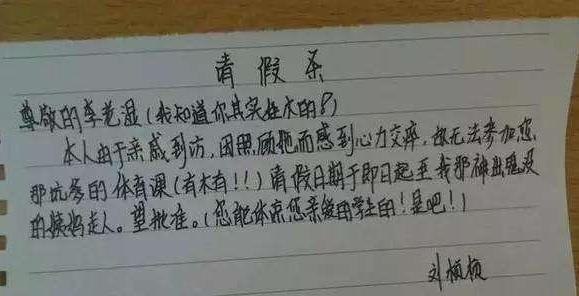 请假条
尊敬的李老湿(我知道你其实姓木的!)
本人由于亲戚到访,因照顾她而感到心力交瘁,故无法参加您
那坑爹的体育课(有木有!!)请假日期于即日起至我那神出鬼没
的姨妈走人。望批准。(您能体谅您亲爱的学生的!是吧!)
刘桢桢